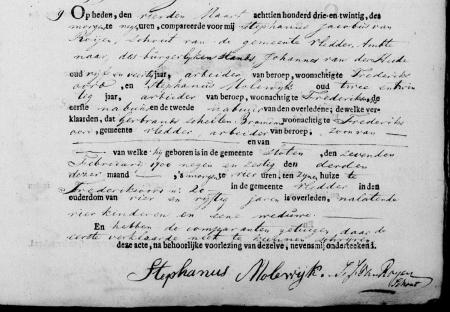 9 Op heden, den vierden Maart achttien honderd drie-en twintig, des
morgens te negen uren, compareerde voor mij Stephanus Jacobus van
Royen, Schout van de gemeente Vledder, Ambte
naar, das bürgerlijken Stands Johannes van der Heide
oud vijf en veertig jaar, arbeider van beroep, woonachtig te Frederiks
oord, en Stephanus Molewijk oud twee en
tig jaar, arbeider van beroep, woonachtig te Frederiks, de
eerste nabuur en de tweede nabuur van den overledene; dewelke ver-
klaarden, dat Gerbrants woonachtig te Frederiks
oor, gemeente Vledder, arbeider van beroep, zoon van
en van
van welke hij geboren is in de gemeente Sloten, den zevenden
Februarij 1700 negen en zestig den derden
dezer maand 's morgens te vier uren, ten zijne huize te
Frederiksoord No. 20 in de gemeente Vledder in den
ouderdom van vier en vijftig jaren is overleden, nalatende
vier kinderen en eene weduwe.
En hebben de comparanten getuigen, daar de
eerste verklaarde niet te kunnen schrijven
deze acte, na behoorlijke voorlezing van dezelve, nevens mij onderteekend.
Stephanus Molewijk. S. J. van Royen
Schout